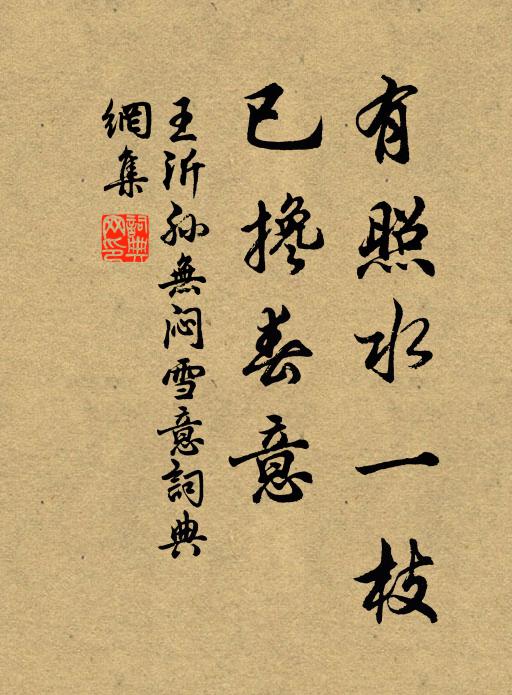 有照水一枝
已攙春意
王沂孙無闷雪意詞典
網集
詞典
网印